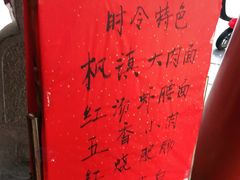 时令特色
枫镇大肉面
红汤虾腊面
五香小肉
红烧肥肠